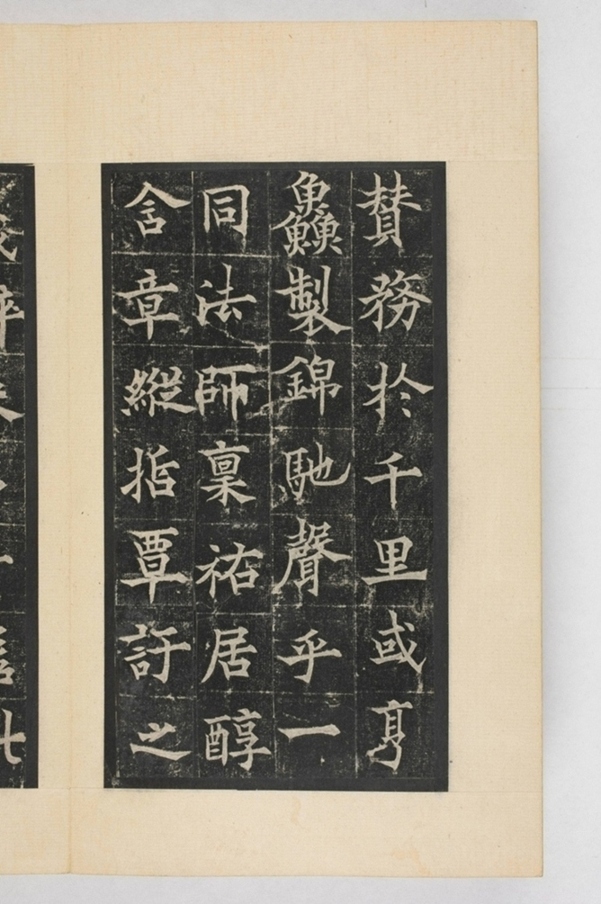 賛務於千里或亨
鱻製錦馳聲乎一
同法師稟祐居醇
含章縱指覃訏之